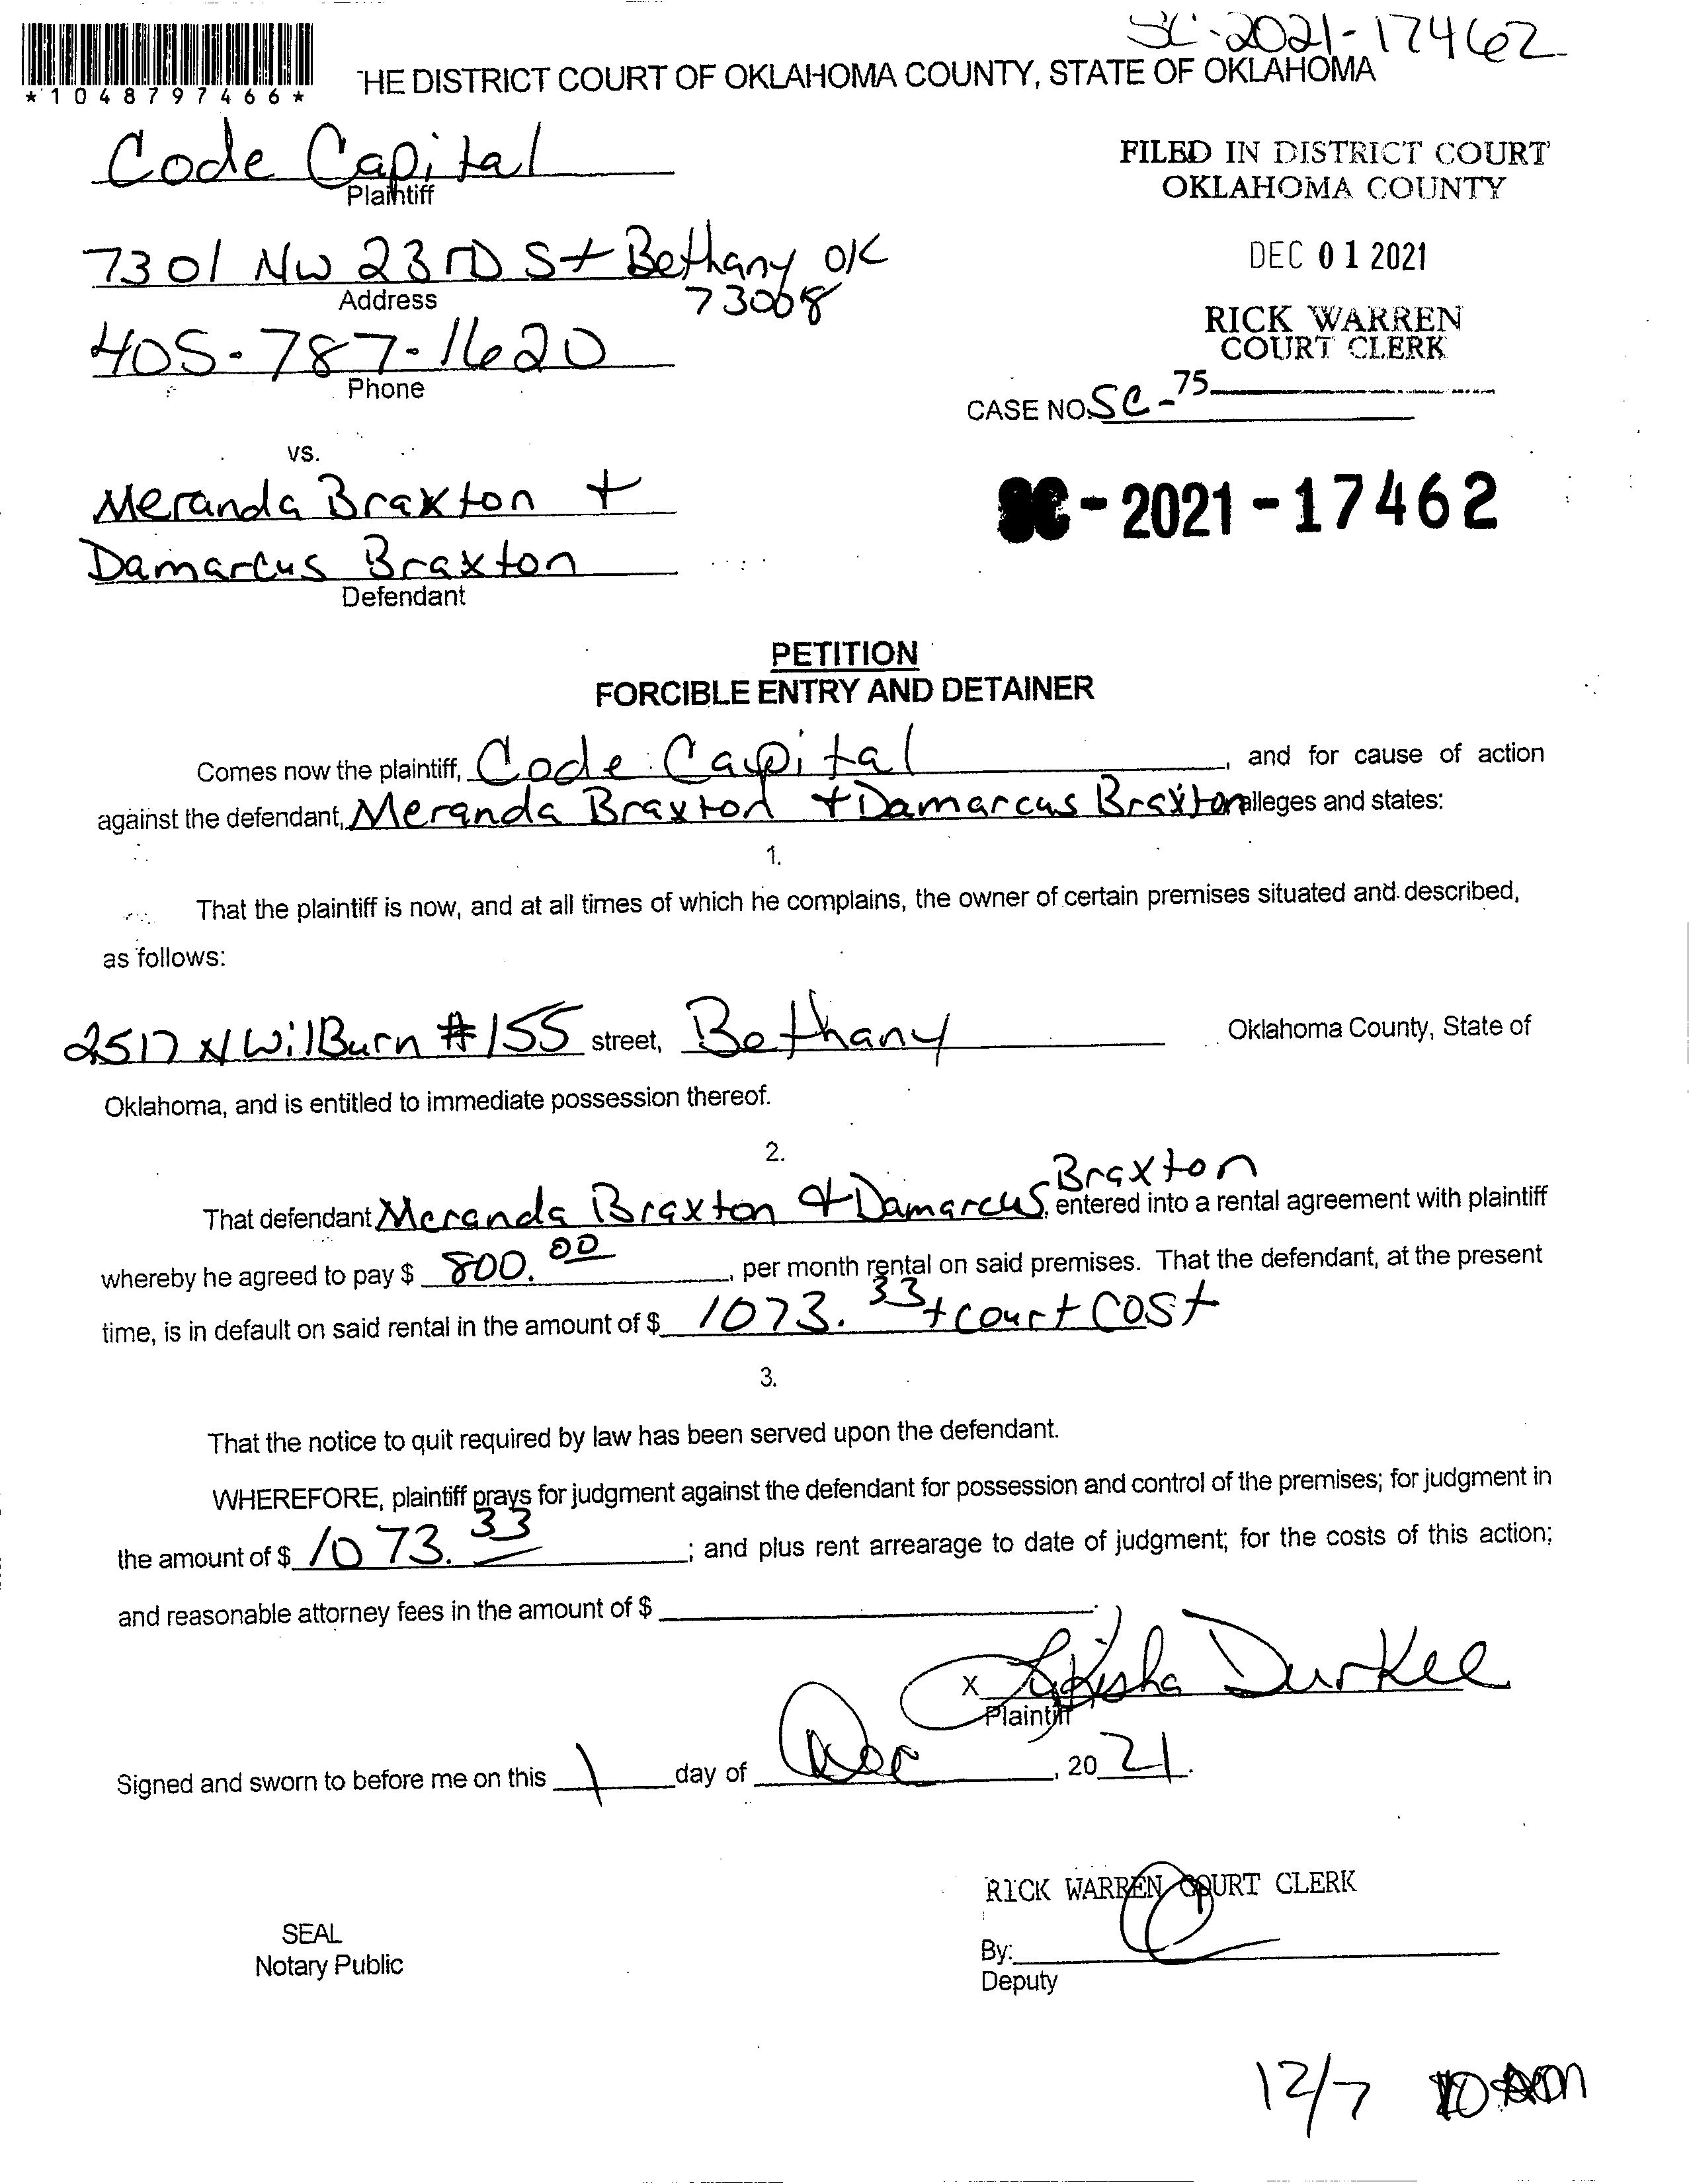 SC-2021-17462
*1048797466*
HE DISTRICT COURT OF OKLAHOMA COUNTY, STATE OF OKLAHOMA
Code Capital
Plaintiff
FILED IN DISTRICT COURT
OKLAHOMA COUNTY
7301 NW 23RD St Bethany OK
73008
Address
DEC 01 2021
405-787-1620
Phone
RICK WARREN
COURT CLERK
75
CASE NO. SC-
vs.
Meranda Braxton +
Damarcus Braxton
Defendant
SC-2021-17462
PETITION
FORCIBLE ENTRY AND DETAINER
Comes now the plaintiff, Code Capital, and for cause of action
against the defendant, Meranda Braxton + Damarcus Braxton alleges and states:
1.
That the plaintiff is now, and at all times of which he complains, the owner of certain premises situated and described,
as follows:
2517 N WilBurn #155 street, Bethany Oklahoma County, State of
Oklahoma, and is entitled to immediate possession thereof.
2.
That defendant Meranda Braxton + Damarcus Braxton, entered into a rental agreement with plaintiff
whereby he agreed to pay $ 800.00, per month rental on said premises. That the defendant, at the present
time, is in default on said rental in the amount of $ 1073.33 + court cost
3.
That the notice to quit required by law has been served upon the defendant.
WHEREFORE, plaintiff prays for judgment against the defendant for possession and control of the premises; for judgment in
the amount of $ 1073.33; and plus rent arrearage to date of judgment; for the costs of this action;
and reasonable attorney fees in the amount of $
X Durkee
Plaintiff
Signed and sworn to before me on this 1 day of Dec, 20 21.
RICK WARREN COURT CLERK
SEAL
Notary Public
By:
Deputy
12/7 10